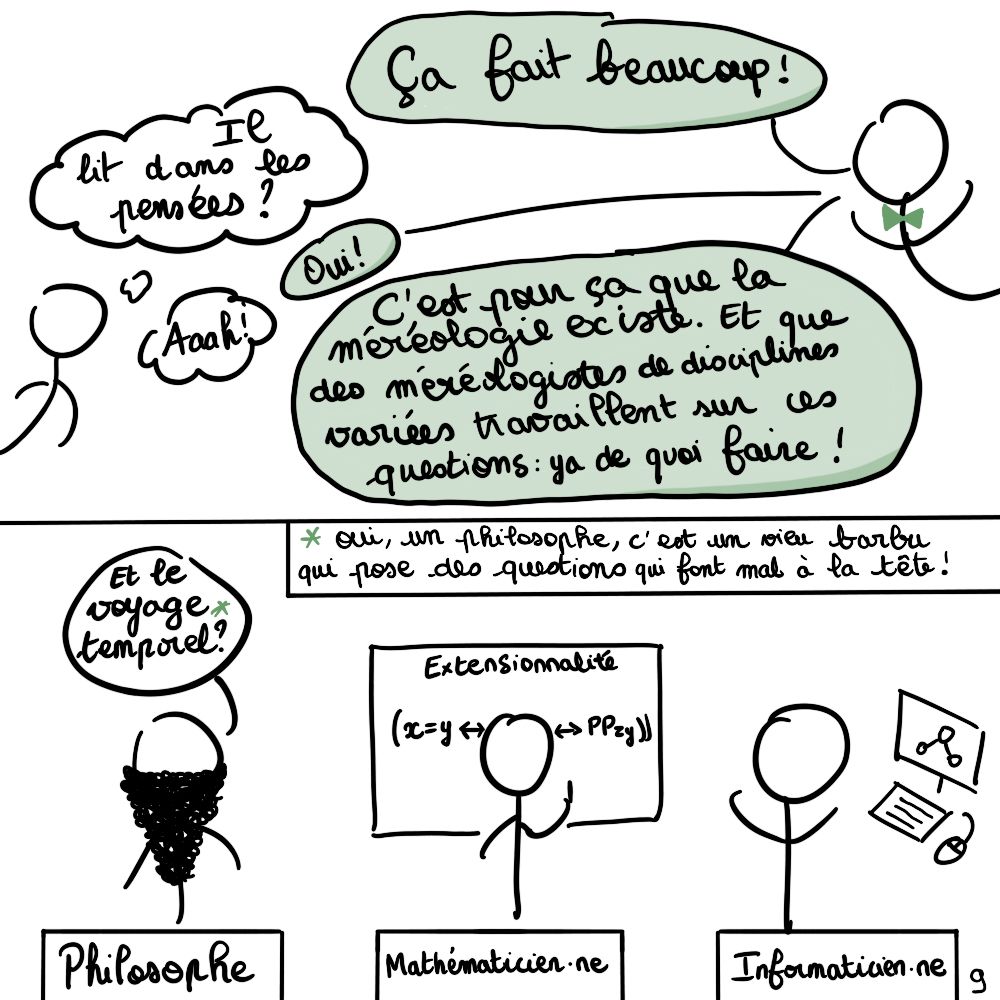 Ça fait beaucoup!
Il
lit dans les
pensées ?
Oui!
Aaah!
C'est pour ça que la
méréologie existe. Et que
des méréologistes de disciplines
variées travaillent sur ces
questions: ya de quoi faire !
* oui, un philosophe, c'est un vieu barbu
qui pose des questions qui font mal à la tête !
Et le
voyage*
temporel?
Extensionnalité
(x=y ↔
↔ PPzy))
Philosophe
Mathématicien·ne
Informaticien·ne
9